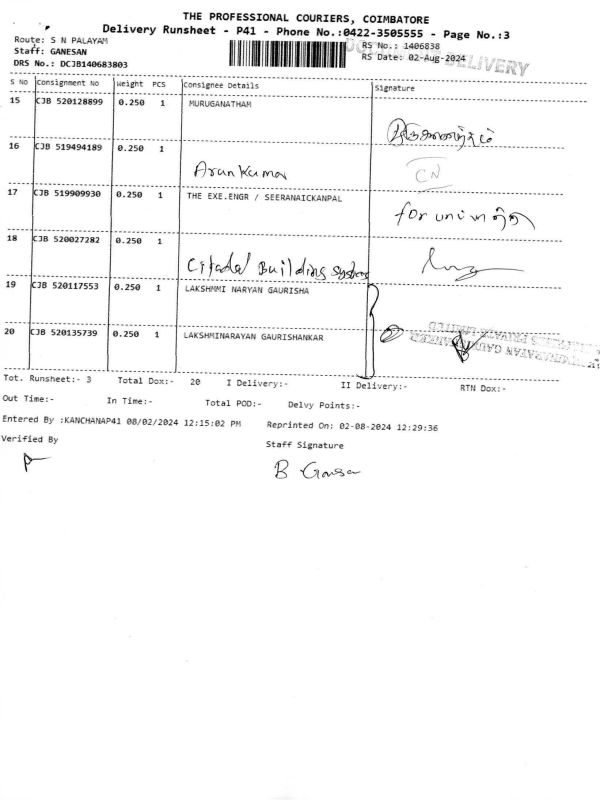 THE PROFESSIONAL COURIERS, COIMBATORE
Delivery Runsheet - P41 - Phone No.:0422-3505555 - Page No.:3
Route: S N PALAYAM
RS No.: 1406838
Staff: GANESAN
RS Date: 02-Aug-2024
DELIVERY
DRS No.: DCJB140683803
S No Consignment No Weight PCS Consignee Details Signature
15 CJB 520128899 0.250 1 MURUGANATHAM
16 CJB 519494189 0.250 1
Arun Kumar CN
17 CJB 519909930 0.250 1 THE EXE.ENGR / SEERANAICKANPAL
for
18 CJB 520027282 0.250 1
Citadel Building Systems
19 CJB 520117553 0.250 1 LAKSHMMI NARYAN GAURISHA
20 CJB 520135739 0.250 1 LAKSHMINARAYAN GAURISHANKAR
Tot. Runsheet:- 3 Total Dox:- 20 I Delivery:- II Delivery:- RTN Dox:-
Out Time:- In Time:- Total POD:- Delvy Points:-
Entered By :KANCHANAP41 08/02/2024 12:15:02 PM Reprinted On: 02-08-2024 12:29:36
Verified By Staff Signature